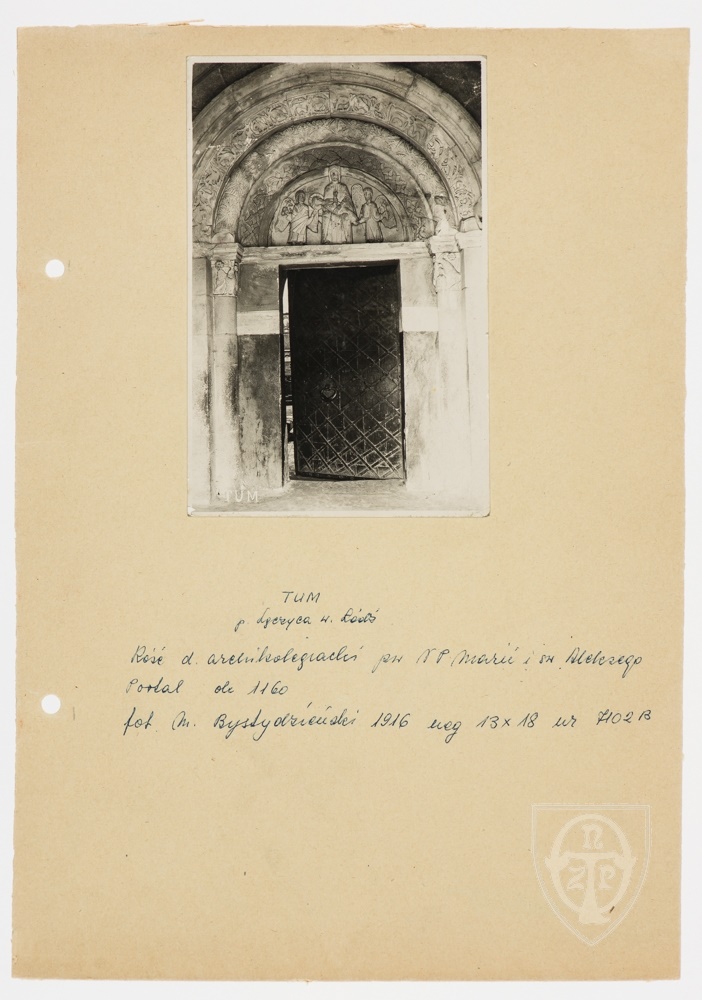 TUM
TUM
p. Łęczyca w. Łódź
Kość d. archikolegiacki pw NP Marii i św. Aleksego
Portal ok 1160
fot. M. Bystydzieński 1916 neg 13x18 nr 7102B
TNZP